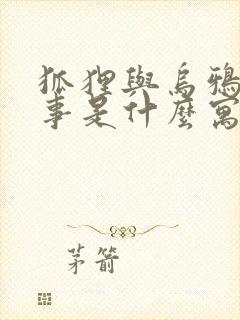 狐狸與烏鴉
事是什麼寓
茅箭